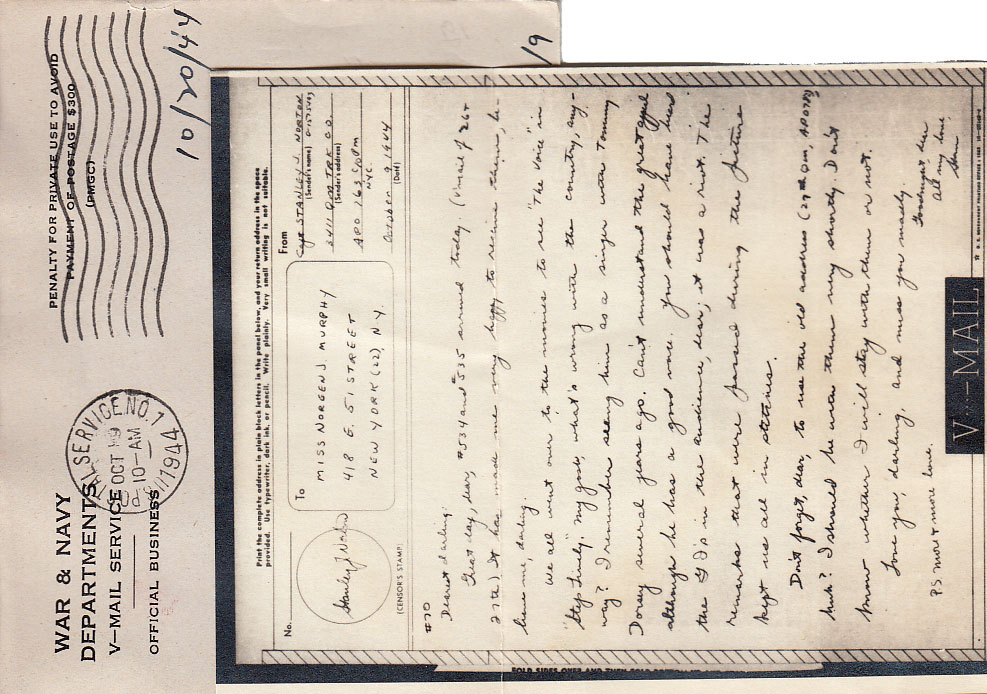 WAR & NAVY
DEPARTMENTS
V—MAIL SERVICE
OFFICIAL BUSINESS
SERVICE NO. 1
OCT 19
10-AM
1944
PENALTY FOR PRIVATE USE TO AVOID
PAYMENT OF POSTAGE $300
(PMGC)
10/20/44
/9
Print the complete address in plain block letters in the panel below, and your return address in the space
provided. Use typewriter, dark ink, or pencil. Write plainly. Very small writing is not suitable.
No.
Stanley J Norton
(CENSOR'S STAMP)
To
MISS NOREEN J. MURPHY
418 E. 51 STREET
NEW YORK (22), N.Y.
From
Capt STANLEY J. NORTON
(Sender's name)
3411 QM TRK CO.
(Sender's address)
APO 163 c/o pm
NYC
October 9 1944
(Date)
#70
Dearest darling:
Great day, dear, #534 and #535 arrived today. (Vmail of 26 +
27th) It has made me very happy to receive them, be-
lieve me, darling.
We all went over to the movies to see "The Voice" in
"Step Lively." My gosh, what's wrong with the country, any-
way? I remember seeing him as a singer with Tommy
Dorsey several years ago. Can't understand the great appeal
although he has a good voice. You should have heard
the G I's in the audience, dear, it was a riot. The
remarks that were passed during the picture
kept us all in stitches.
Don't forget, dear, to use the old address (27th Qm, APO 782)
huh? I should be with them very shortly. Don't
know whether I will stay with them or not.
Love you, darling, and miss you muchly.
Goodnight dear
all my love
Stan
P.S. more + more love.
V···—MAIL
FOLD SIDES OVER AND THEN FOLD